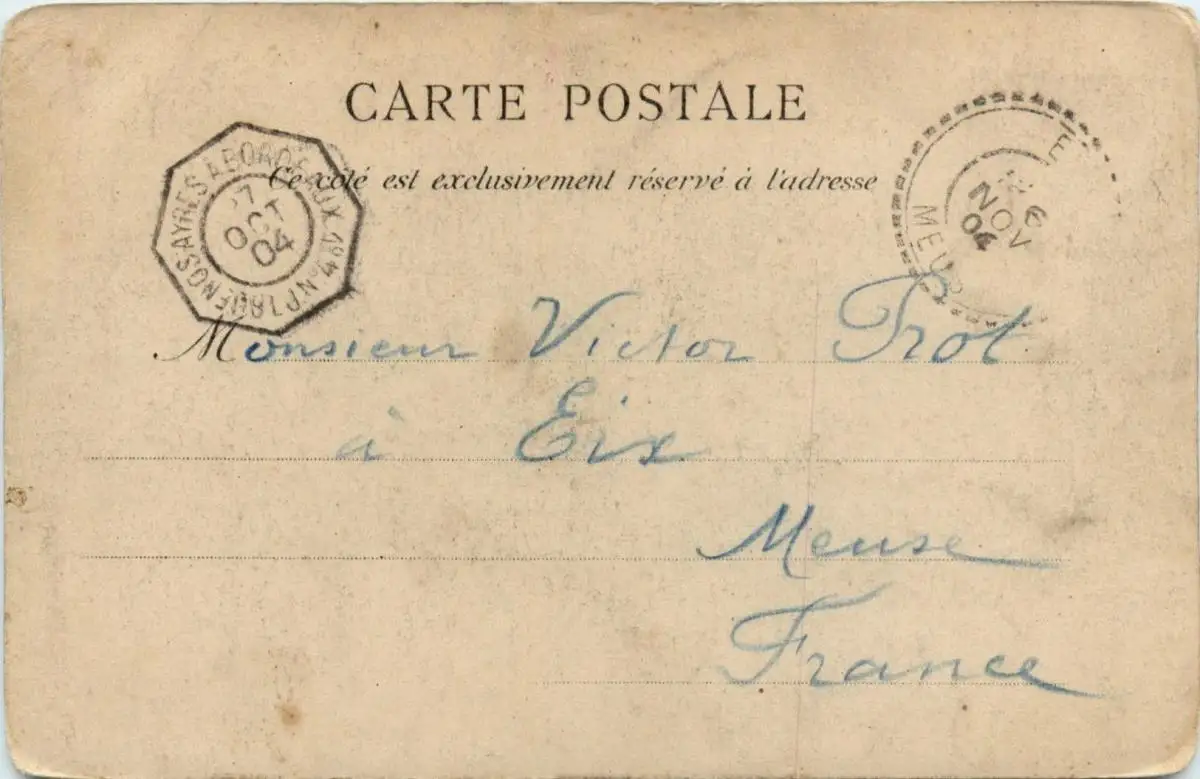 CARTE POSTALE
Ce côté est exclusivement réservé à l'adresse
BUENOS-AYRES A BORDEAUX
OCT
04
NOV
04
Monsieur Victor Prot
à Eix
Meuse
France